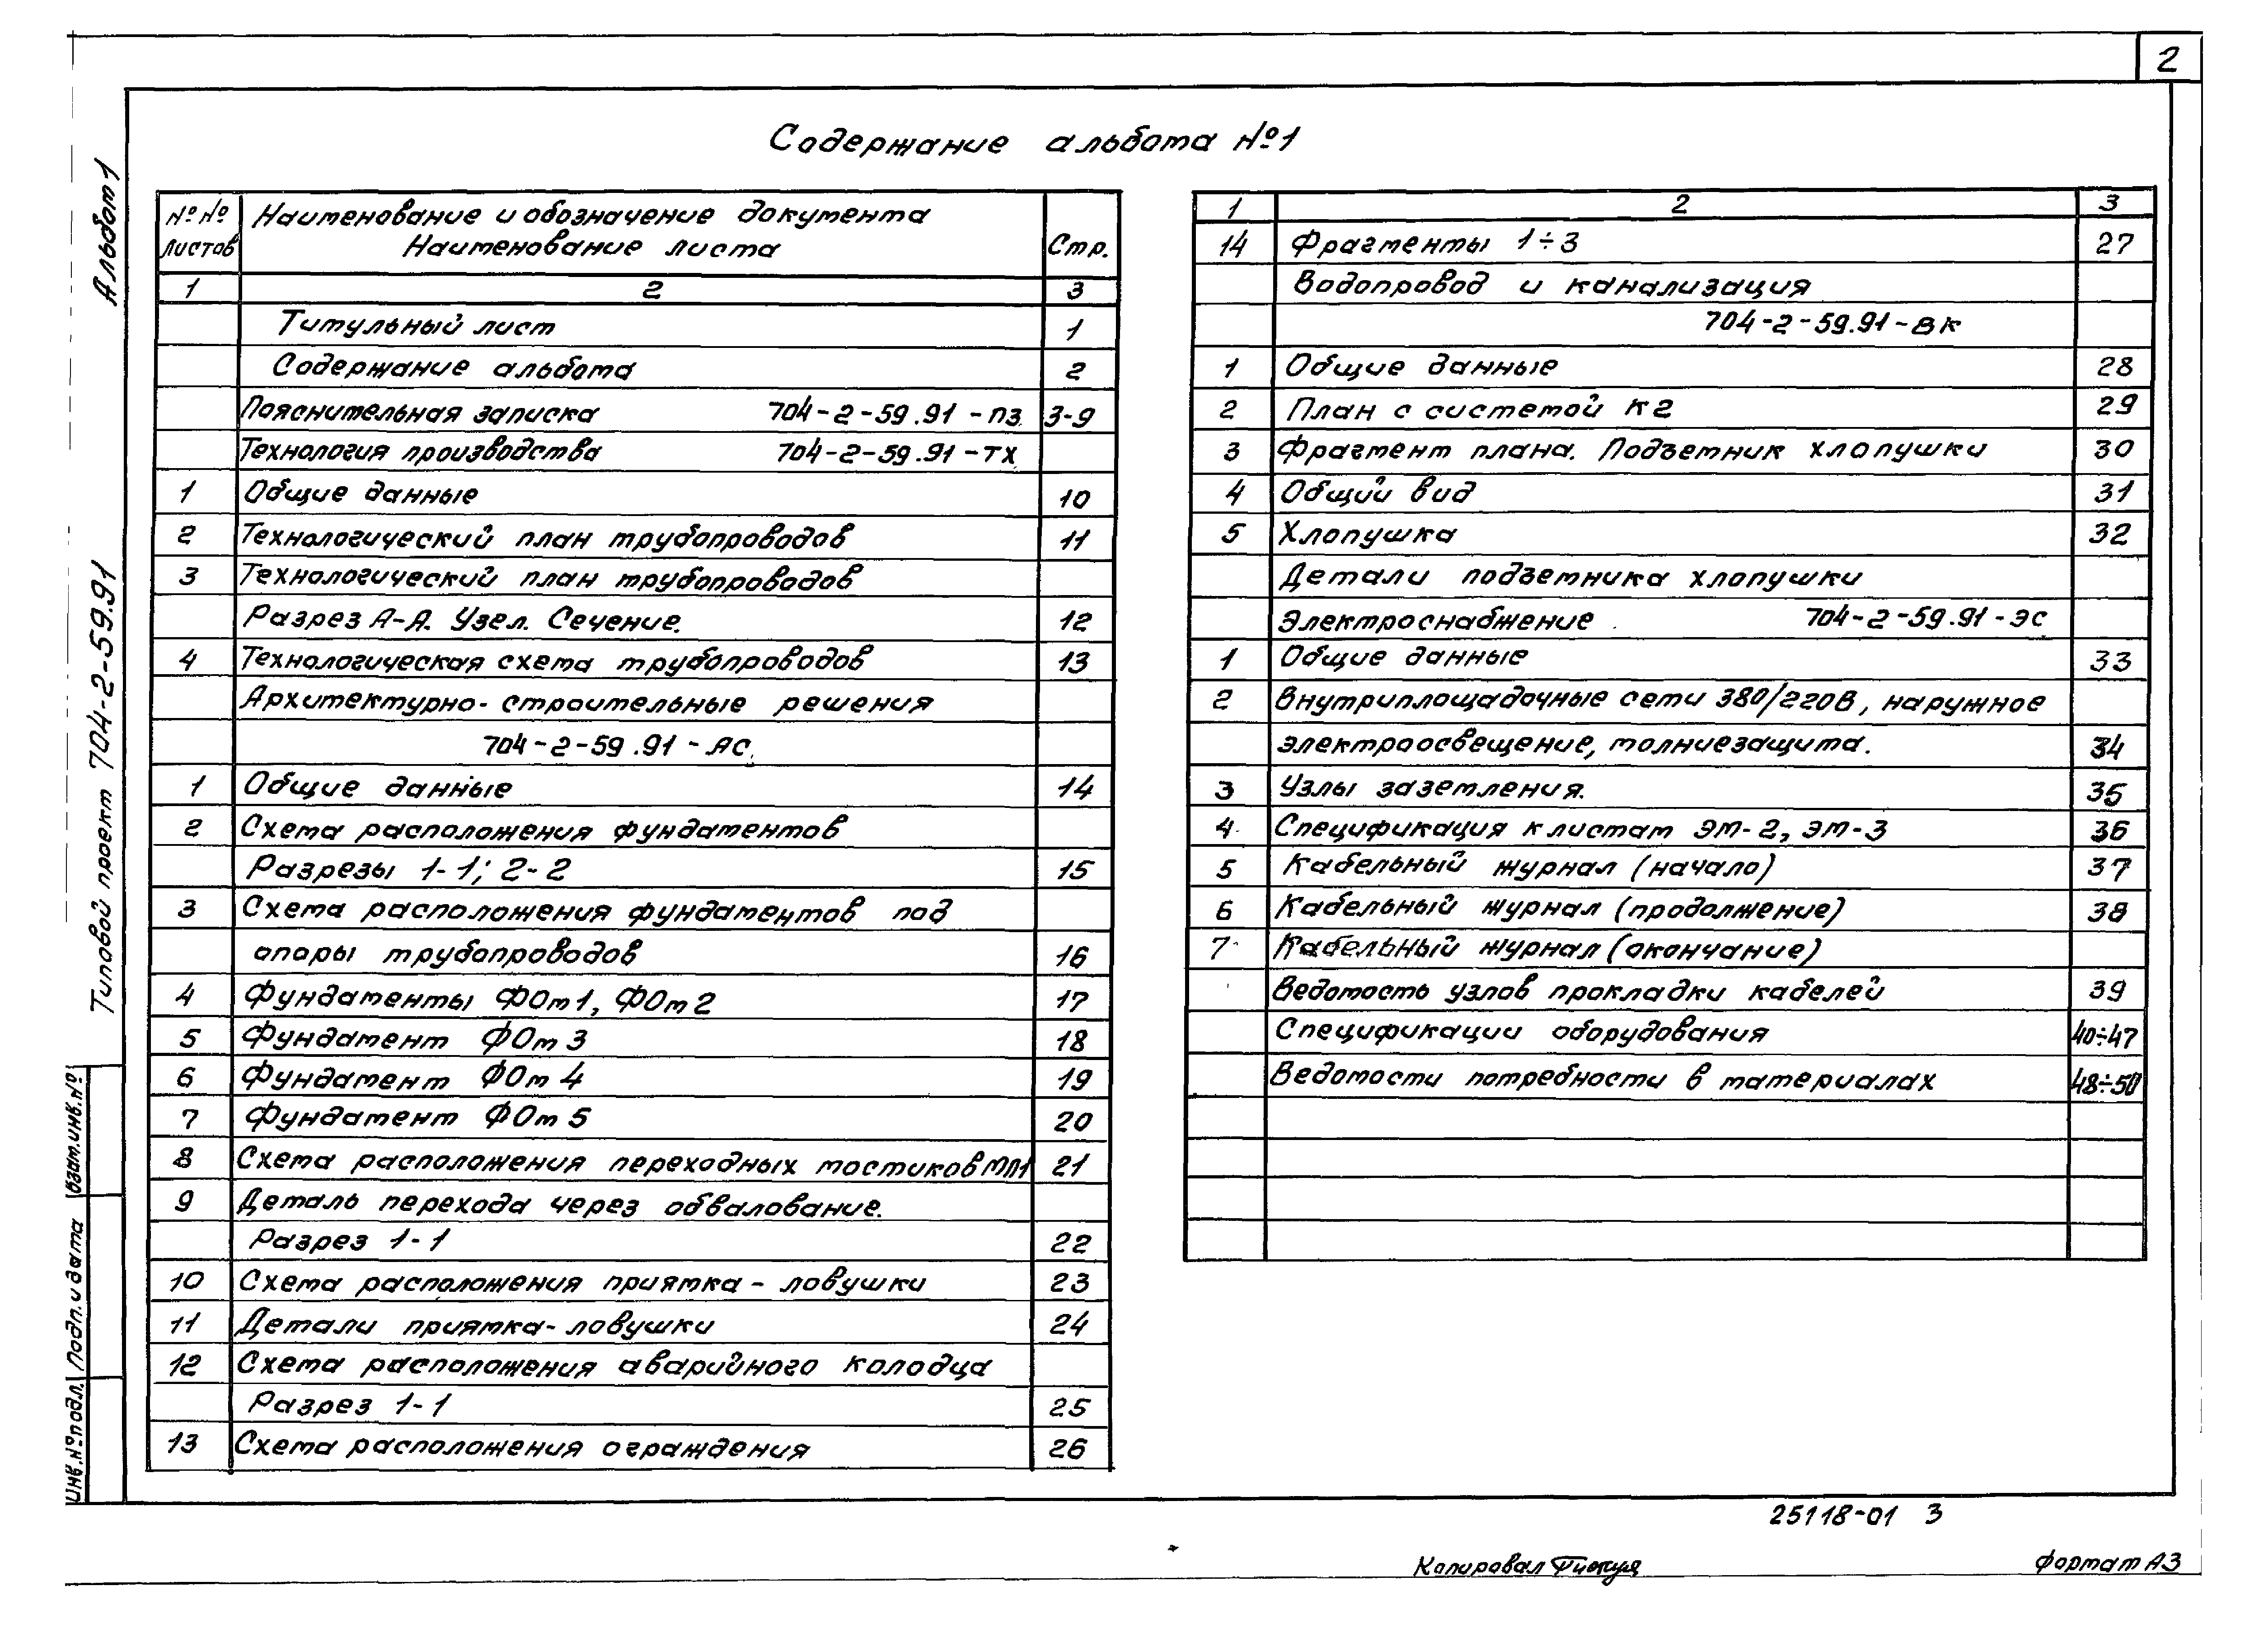 2
Содержание альбома №1
№№ Наименование и обозначение документа
листов Наименование листа Стр.
1 2 3
Титульный лист 1
Содержание альбома 2
Пояснительная записка 704-2-59.91-ПЗ 3-9
Технология производства 704-2-59.91-ТХ
1 Общие данные 10
2 Технологический план трубопроводов 11
3 Технологический план трубопроводов
Разрез А-А. Узел. Сечение. 12
4 Технологическая схема трубопроводов 13
Архитектурно-строительные решения
704-2-59.91-АС
1 Общие данные 14
2 Схема расположения фундаментов
Разрезы 1-1; 2-2 15
3 Схема расположения фундаментов под
опоры трубопроводов 16
4 Фундаменты ФОм1, ФОм2 17
5 Фундамент ФОм3 18
6 Фундамент ФОм4 19
7 Фундамент ФОм5 20
8 Схема расположения переходных мостиков МП1 21
9 Деталь перехода через обвалование.
Разрез 1-1 22
10 Схема расположения приямка-ловушки 23
11 Детали приямка-ловушки 24
12 Схема расположения аварийного колодца
Разрез 1-1 25
13 Схема расположения ограждения 26
1 2 3
14 Фрагменты 1÷3 27
Водопровод и канализация
704-2-59.91-ВК
1 Общие данные 28
2 План с системой К2 29
3 Фрагмент плана. Подъемник хлопушки 30
4 Общий вид 31
5 Хлопушка 32
Детали подъемника хлопушки
Электроснабжение 704-2-59.91-ЭС
1 Общие данные 33
2 Внутриплощадочные сети 380/220В, наружное
электроосвещение, молниезащита. 34
3 Узлы заземления. 35
4 Спецификация к листам ЭМ-2, ЭМ-3 36
5 Кабельный журнал (начало) 37
6 Кабельный журнал (продолжение) 38
7 Кабельный журнал (окончание)
Ведомость узлов прокладки кабелей 39
Спецификации оборудования 40÷47
Ведомости потребности в материалах 48÷50
Альбом 1
Типовой проект 704-2-59.91
Взам.инв.№
Подп. и дата
Инв.№подл.
25118-01 3
Копировал
Формат А3